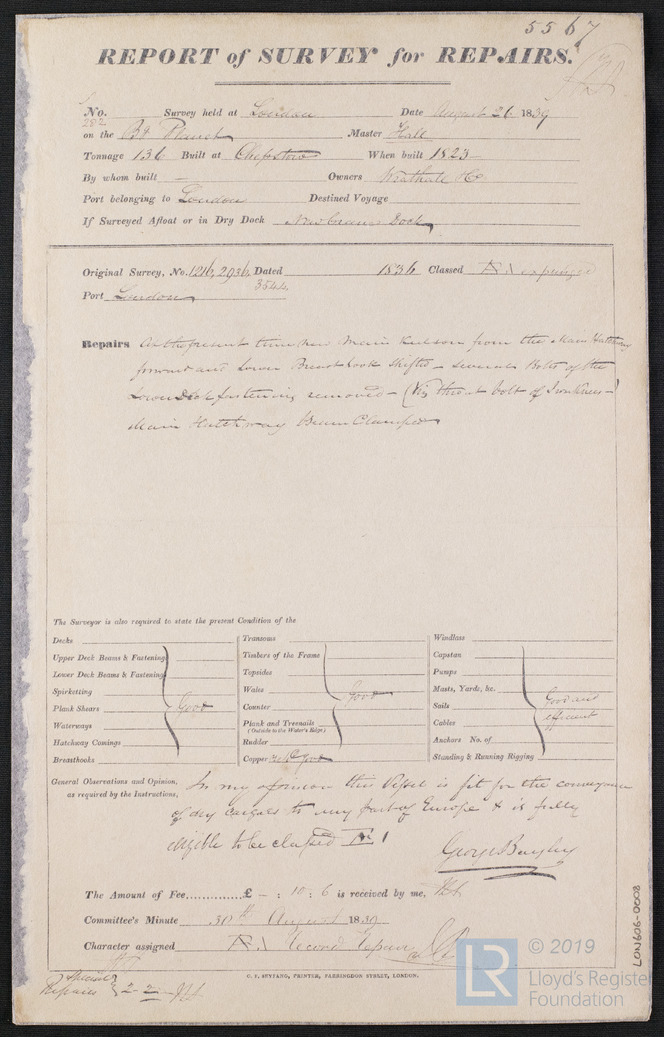 5567
REPORT of SURVEY for REPAIRS.
No. 282 Survey held at London Date August 26 1839
on the Bg Planet Master Hall
Tonnage 136 Built at Chepstow When built 1823
By whom built — Owners &Co
Port belonging to London Destined Voyage
If Surveyed Afloat or in Dry Dock New Crane Dock
Original Survey, No. 1216, 2936, Dated 1836 Classed Æ 1 expunged
3544
Port London
Repairs At the present time new Main Keelson from the Main Hatchway
forward and Lower Breasthook shifted - several Bolts of the
Lower Deck fastening removed - (Viz throat bolt of Iron Knees -)
Main Hatchway Beam Clamped
The Surveyor is also required to state the present Condition of the
Decks
Upper Deck Beams & Fastening
Lower Deck Beams & Fastening
Spirketting
Plank Shears Good
Waterways
Hatchway Comings
Breasthooks
Transoms
Timbers of the Frame
Topsides
Wales Good
Counter
Plank and Treenails
(Outside to the Water's Edge)
Rudder
Copper Good
Windlass
Capstan
Pumps
Masts, Yards, &c. Good and
Sails efficient
Cables
Anchors No. of
Standing & Running Rigging
General Observations and Opinion, In my opinion this Vessel is fit for the conveyance
as required by the Instructions, of dry cargoes to any part of Europe & is fully
eligible to be classed Æ 1
George Bayley
The Amount of Fee..............£ - : 10 : 6 is received by me,
Committee's Minute 30th August 1839
Character assigned Æ 1 Second Repair
C. F. SEYFANG, PRINTER, FARRINGDON STREET, LONDON.
Special
Repairs } 2-2-
LON606-0008
LR
© 2019
Lloyd's Register
Foundation